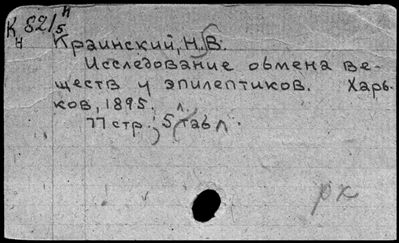 К 82/5 н
н
Краинский, Н.В.
Исследование обмена ве-
ществ у эпилептиков. Харь-
ков, 1895.
77 стр., 5 л. табл.
рк